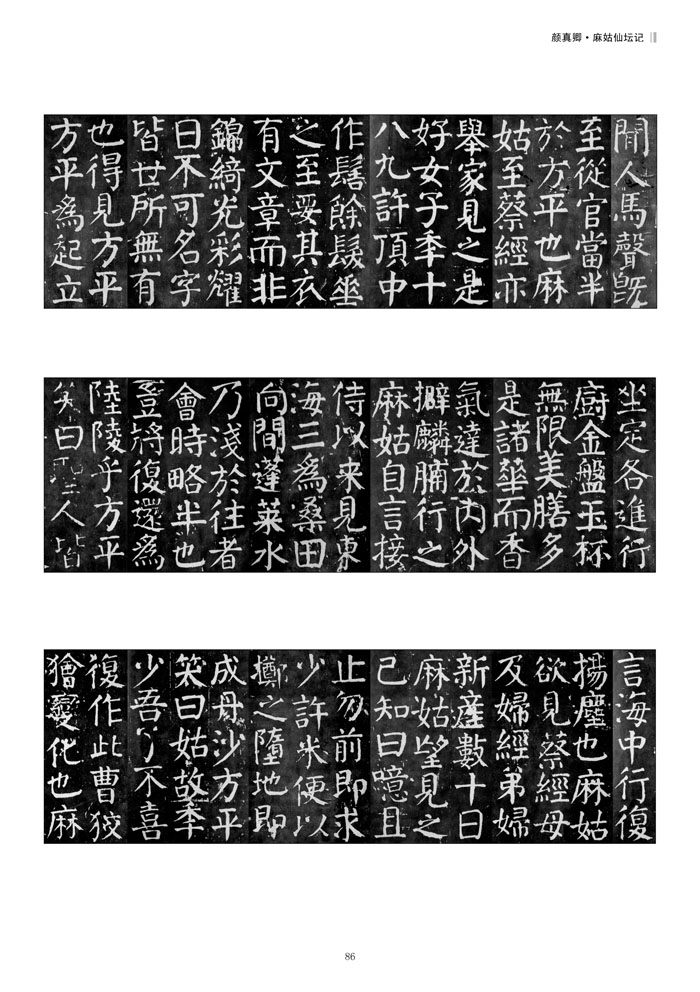 颜真卿·麻姑仙坛记
聞人馬聲既
至從官當半
於方平也麻
姑至蔡經亦
舉家見之是
好女子年十
八九許頂中
作髻餘髮垂
之至要其衣
有文章而非
錦綺光彩耀
日不可名字
皆世所無有
也得見方平
方平為起立
坐定各進行
廚金盤玉杯
無限美膳多
是諸華而香
氣達於內外
擗麟脯行之
麻姑自言接
待以来見東
海三為桑田
向間蓬莱水
乃淺於往者
會時略半也
豈將復還為
陸陵乎方平
笑曰聖人皆
言海中行復
揚塵也麻姑
欲見蔡經母
及婦經弟婦
新產數十日
麻姑望見之
已知曰噫且
止勿前即求
少許米便以
擲之墮地即
成丹沙方平
笑曰姑故年
少吾了不喜
復作此曹狡
獪變化也麻
86